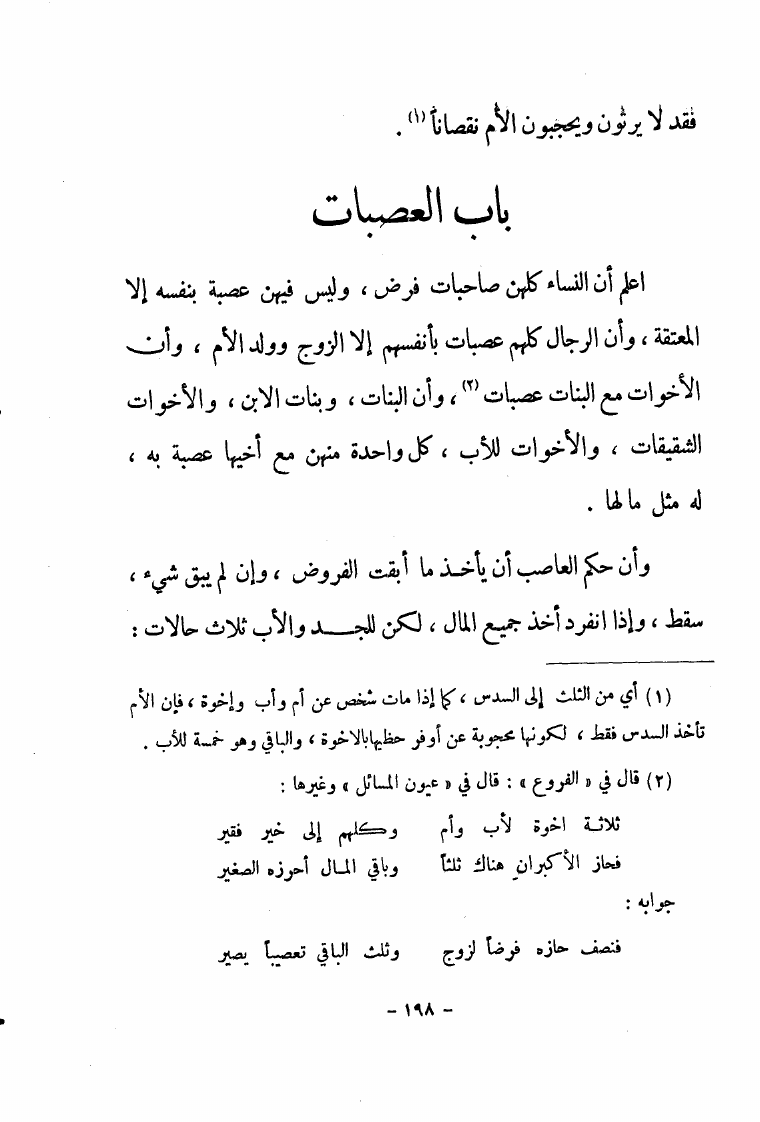 فقد لا يرثون ويحجبون الأم نقصاناً (١) .
باب العصبات
اعلم أن النساء كلهن صاحبات فرض ، وليس فيهن عصبة بنفسه إلا
المعتقة ، وأن الرجال كلهم عصبات بأنفسهم إلا الزوج وولد الأم ، وأن
الأخوات مع البنات عصبات (٢) ، وأن البنات ، وبنات الابن ، والأخوات
الشقيقات ، والأخوات للأب ، كل واحدة منهن مع أخيها عصبة به ،
له مثل ما لها .
وأن حكم العاصب أن يأخذ ما أبقت الفروض ، وإن لم يبق شيء ،
سقط ، وإذا انفرد أخذ جميع المال ، لكن للجد والأب ثلاث حالات :
(١) أي من الثلث إلى السدس ، كما إذا مات شخص عن أم وأب وإخوة ، فإن الأم
تأخذ السدس فقط ، لكونها محجوبة عن أوفر حظيها بالاخوة ، والباقي وهو خمسة للأب .
(٢) قال في « الفروع » : قال في « عيون المسائل » وغيرها :
ثلاثة اخوة لأب وأم وكلهم إلى خير فقير
فحاز الأكبران هناك ثلثاً وباقي المال أحرزه الصغير
جوابه :
فنصف حازه فرضاً لزوج وثلث الباقي تعصيباً يصير
- ١٩٨ -